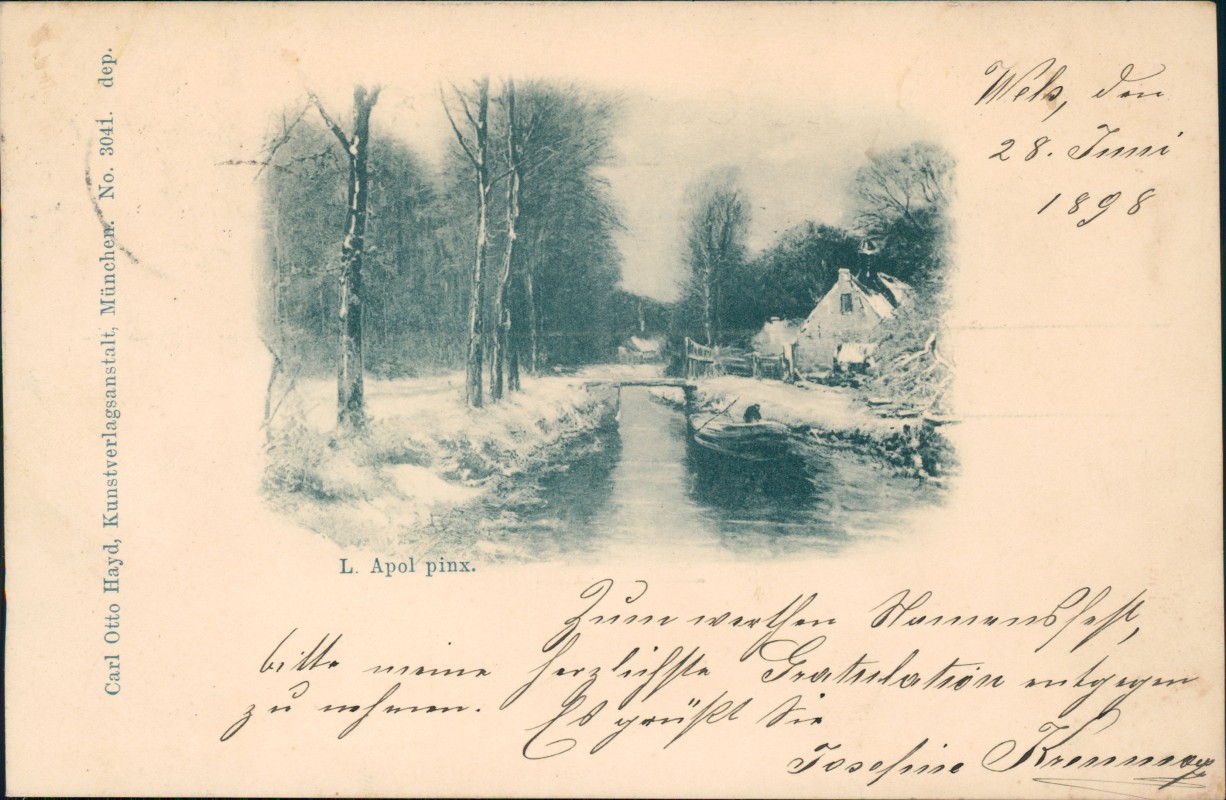 Wels, den
28. Juni
1898
Carl Otto Hayd, Kunstverlagsanstalt, München. No. 3041. dep.
L. Apol pinx.
Zum werthen Namensfest,
bitte meine herzlichste Gratulation entgegen
zu nehmen. Es grüßt Sie
Josefine